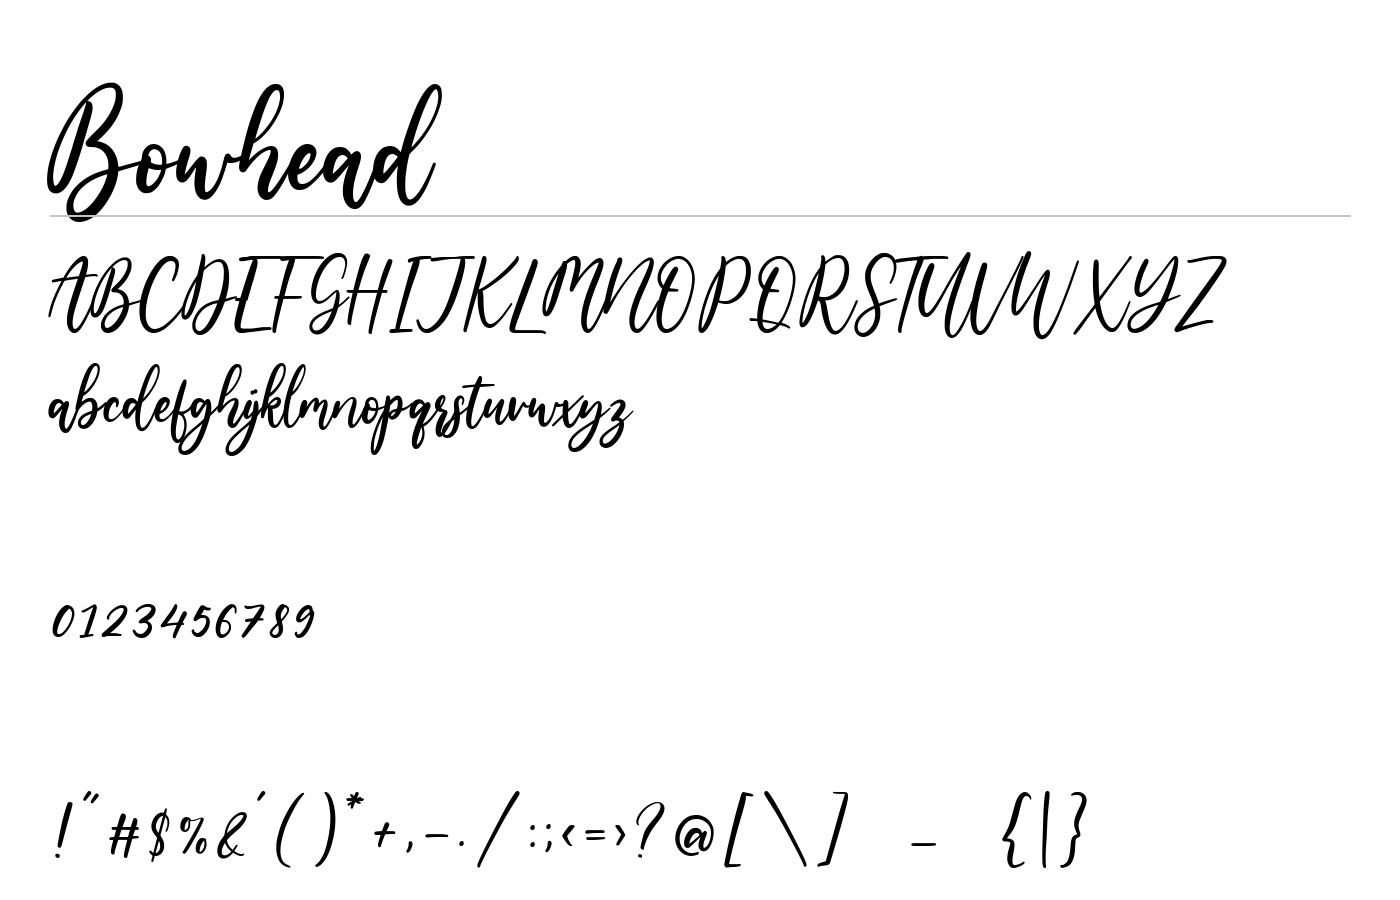 Bowhead
ABCDEFGHIJKLMNOPQRSTUVWXYZ
abcdefghijklmnopqrstuvwxyz
0123456789
!"#$%&'()*+,-./:;<=>?@[\]_{|}